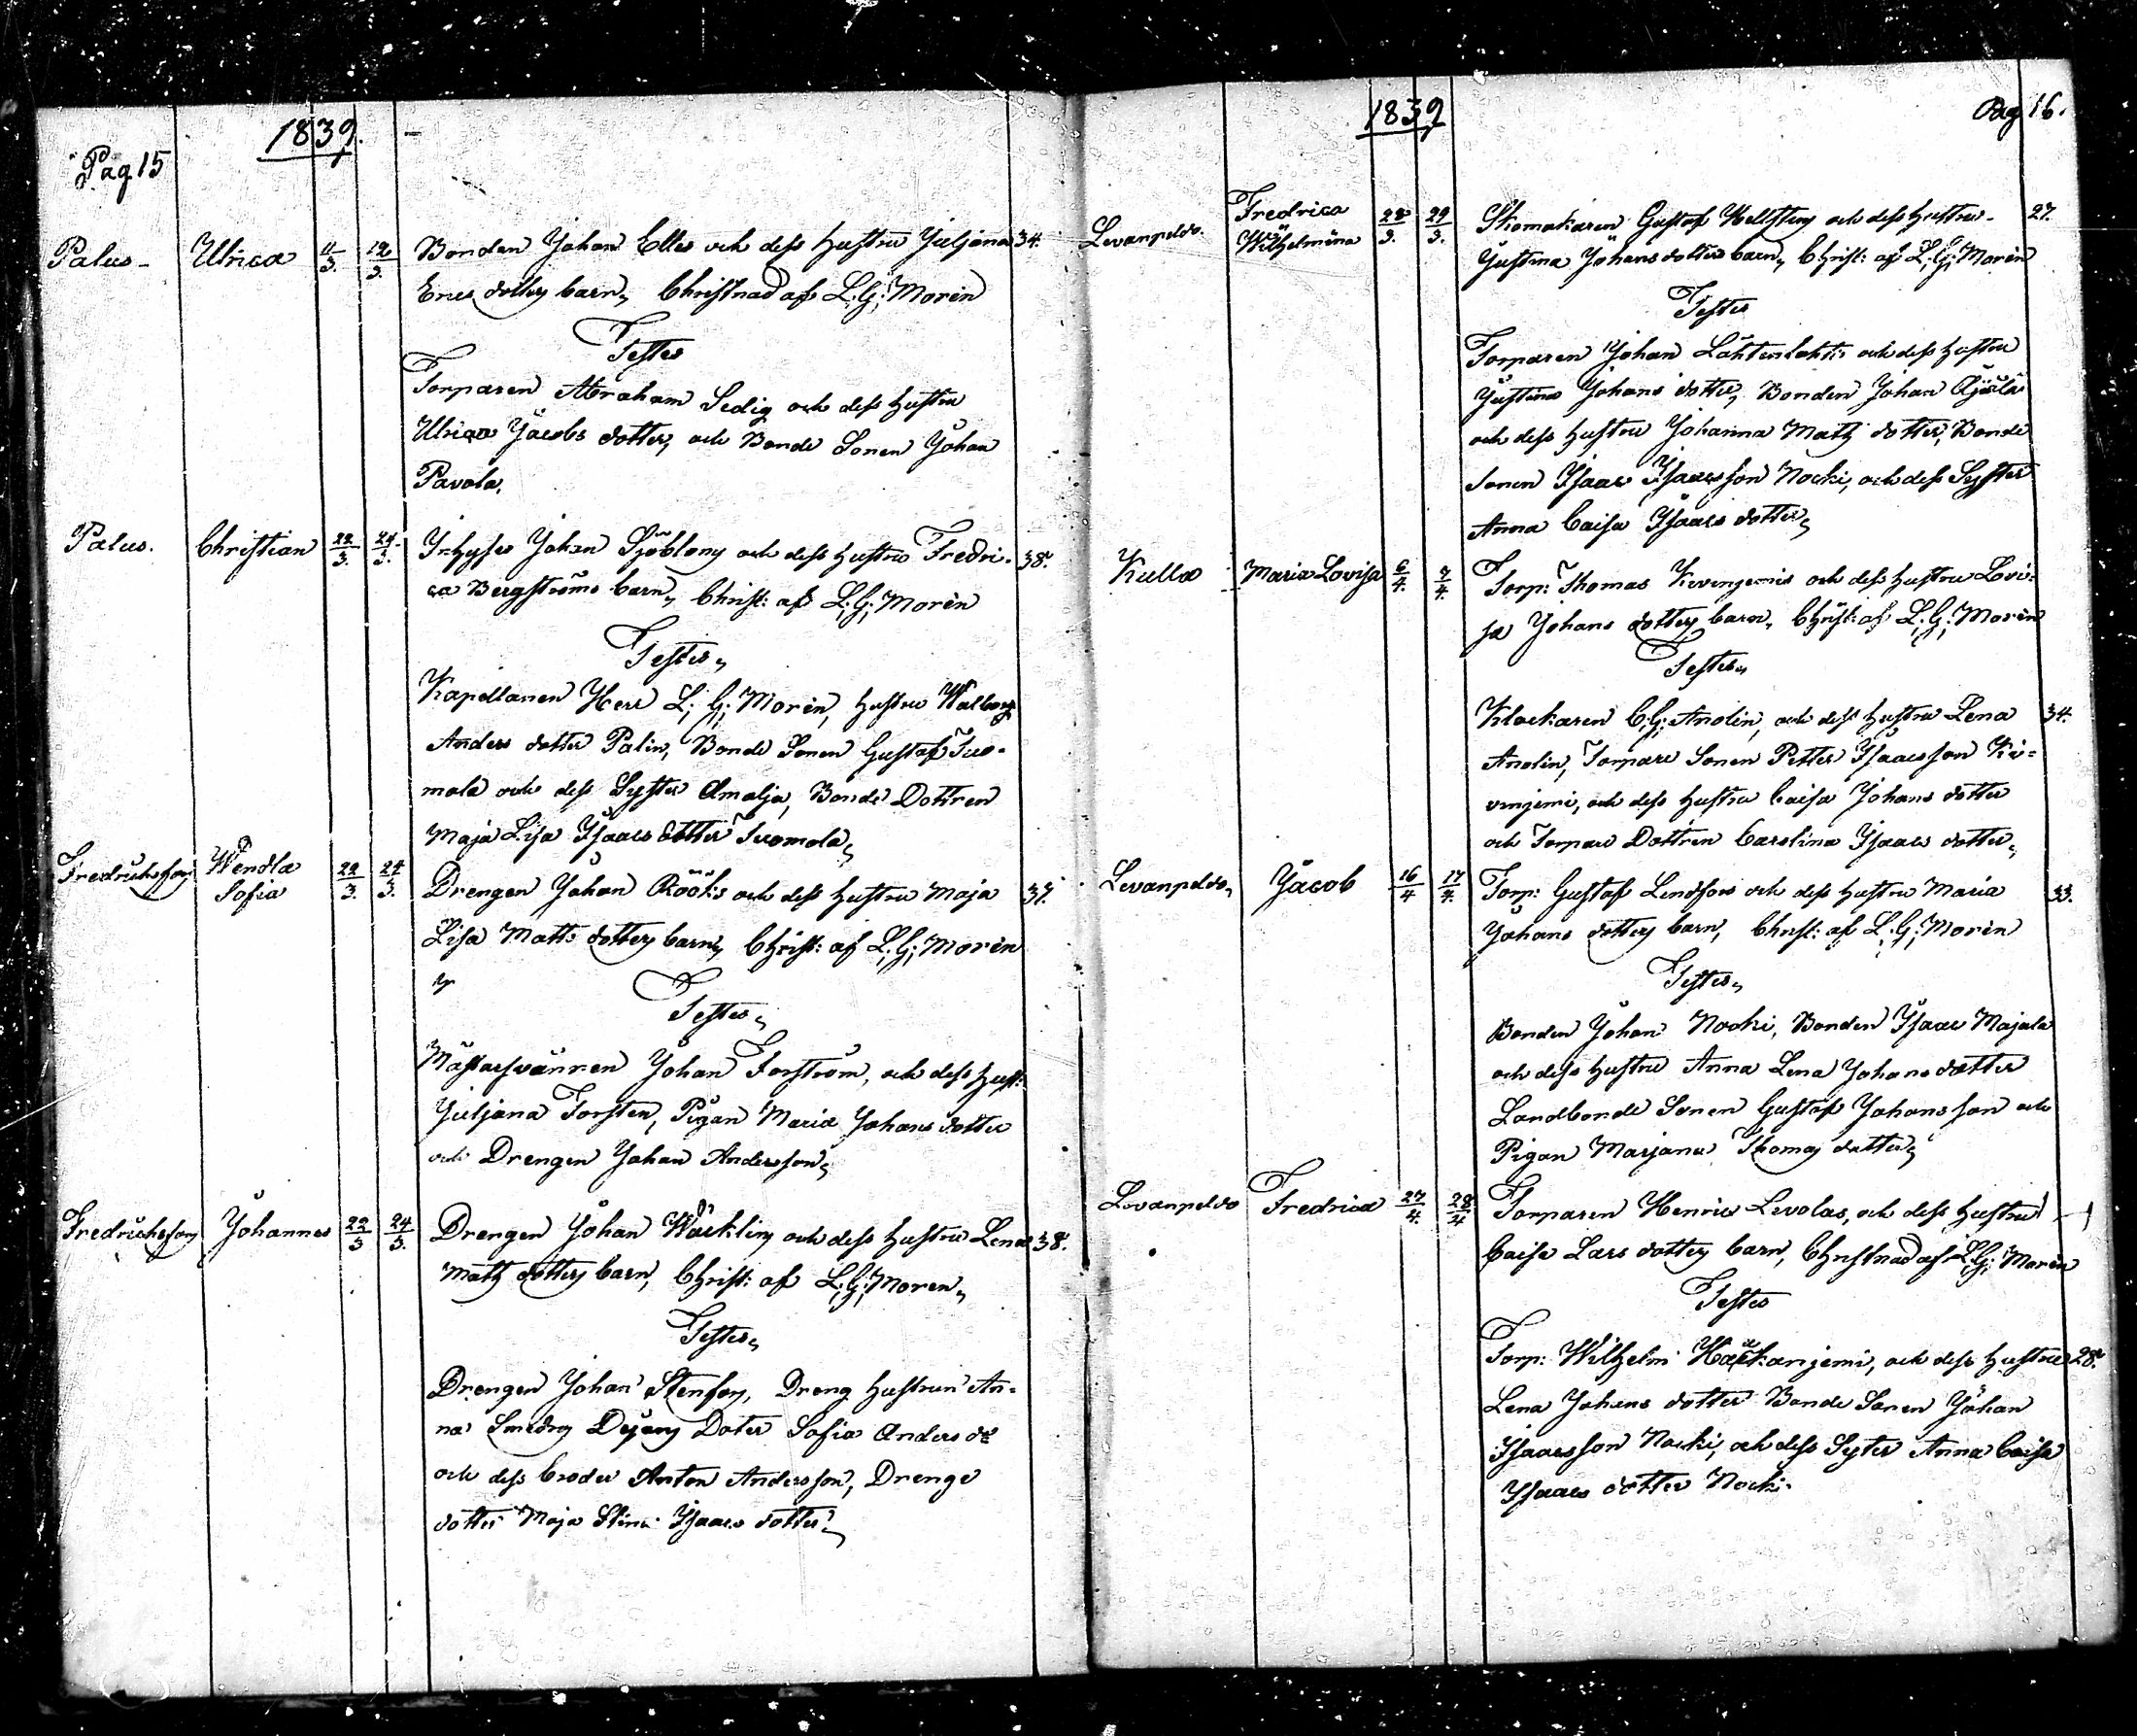 1839.
Pag 15
Palus Ulrica 11/3. 12/3. Bonden Johan Elles och dess Hustru Juljana 34.
Erics dotters barn, Christnad af L: G: Morin
Testes
Torparen Abraham Sedig och dess Hustru
Ulrica Jacobs dotter, och Bonde Sonen Johan
Pavola.
Palus. Christian 22/3. 24/3. Johan Sjöblom och dess Hustru Fredri- 38.
ca Bergströms barn, Christ: af L: G: Morin
Testes
Kapellanen Herr L: G: Morin, Hustru Walborg
Anders dotter Palin, Bonde Sonen Gustaf Tuo-
mola och dess Syster Amalja, Bonde Dottren
Maja Lisa Isaacs dotter Tuomola,
Fredrichsfors Wendla Sofia 22/3. 24/3. Drengen Johan Rööks och dess Hustru Maja 37.
Lisa Matts dotters barn, Christ: af L: G: Morin
Testes
Johan Forström, och dess Hust:
Juljana Forsten, Pigan Maria Johans dotter
och Drengen Johan Andersson,
Fredrichsfors Johannes 22/3 24/3. Drengen Johan Wäcklin och dess Hustru Lena 38.
Matts dotters barn, Christ: af L: G: Moren,
Testes
Drengen Johan Stenfors, Dreng Hustrun An-
na Doter Sofia Anders dr
och dess broder Anton Andersson, Drenge
dotter Maja Stina Isaacs dotter
1839
Pag 16.
Levanpeldo. Fredrica Wilhelmina 28/3. 29/3. Skomakaren Gustaf Hellsten och dess Hustru 27.
Justina Johans dotters barn, Christ: af L: G: Morin
Testes
Torparen Johan Lähtenlahti och dess Hustru
Justina Johans dotter, Bonden Johan
och dess Hustru Johanna Matts dotter, Bonde
Sonen Isaac Isaacsson Nocki, och dess Syster
Anna Caisa Isaacs dotter,
Kulla Maria Lovisa 6/4. 7/4. Torp: Thomas Kivinjemis och dess Hustru Lovi-
sa Johans dotters barn, Christ: af L: G: Morin
Testes
Klockaren C: G: Anolin, och dess Hustru Lena 34.
Anolin, Torpare Sonen Petter Isaacsson Ki-
vinjemi, och dess Hustru Caisa Johans dotter
och Torpare Dottren Carolina Isaacs dotter,
Levanpeldo, Jacob 16/4 17/4. Torp: Gustaf Lindfors och dess Hustru Maria 33.
Johans dotters barn, Christ: af L: G: Morin
Testes
Bonden Johan Nocki, Bonden Isaac Majala
och dess Hustru Anna Lena Johans dotter
Landbonde Sonen Gustaf Johansson och
Pigan Marjana Thomas dotter,
Levanpeldo Fredrica 27/4. 28/4 Torparen Henric Levolas, och dess Hustru
Caisa Lars dotters barn, Christnad af L: G: Morin
Testes
Torp: Wilhelm och dess Hustru 28.
Lena Johans dotter Bonde Sonen Johan
Isaacsson Nocki, och dess Syster Anna Caisa
Isaacs dotter Nocki.